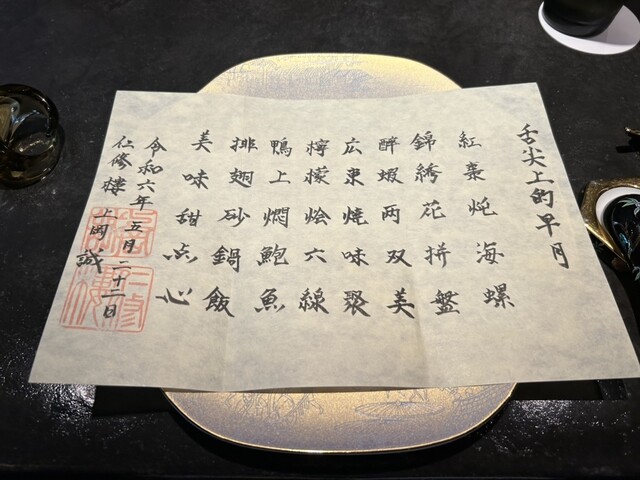 舌尖上的早月
紅棗炖海螺
錦綉花拼盤
醉蝦両双美
広東焼味聚
檸檬烩六線
鴨上燜鮑魚
排翅砂鍋飯
美味甜点心
令和六年五月二十二日
仁修樓 上岡誠